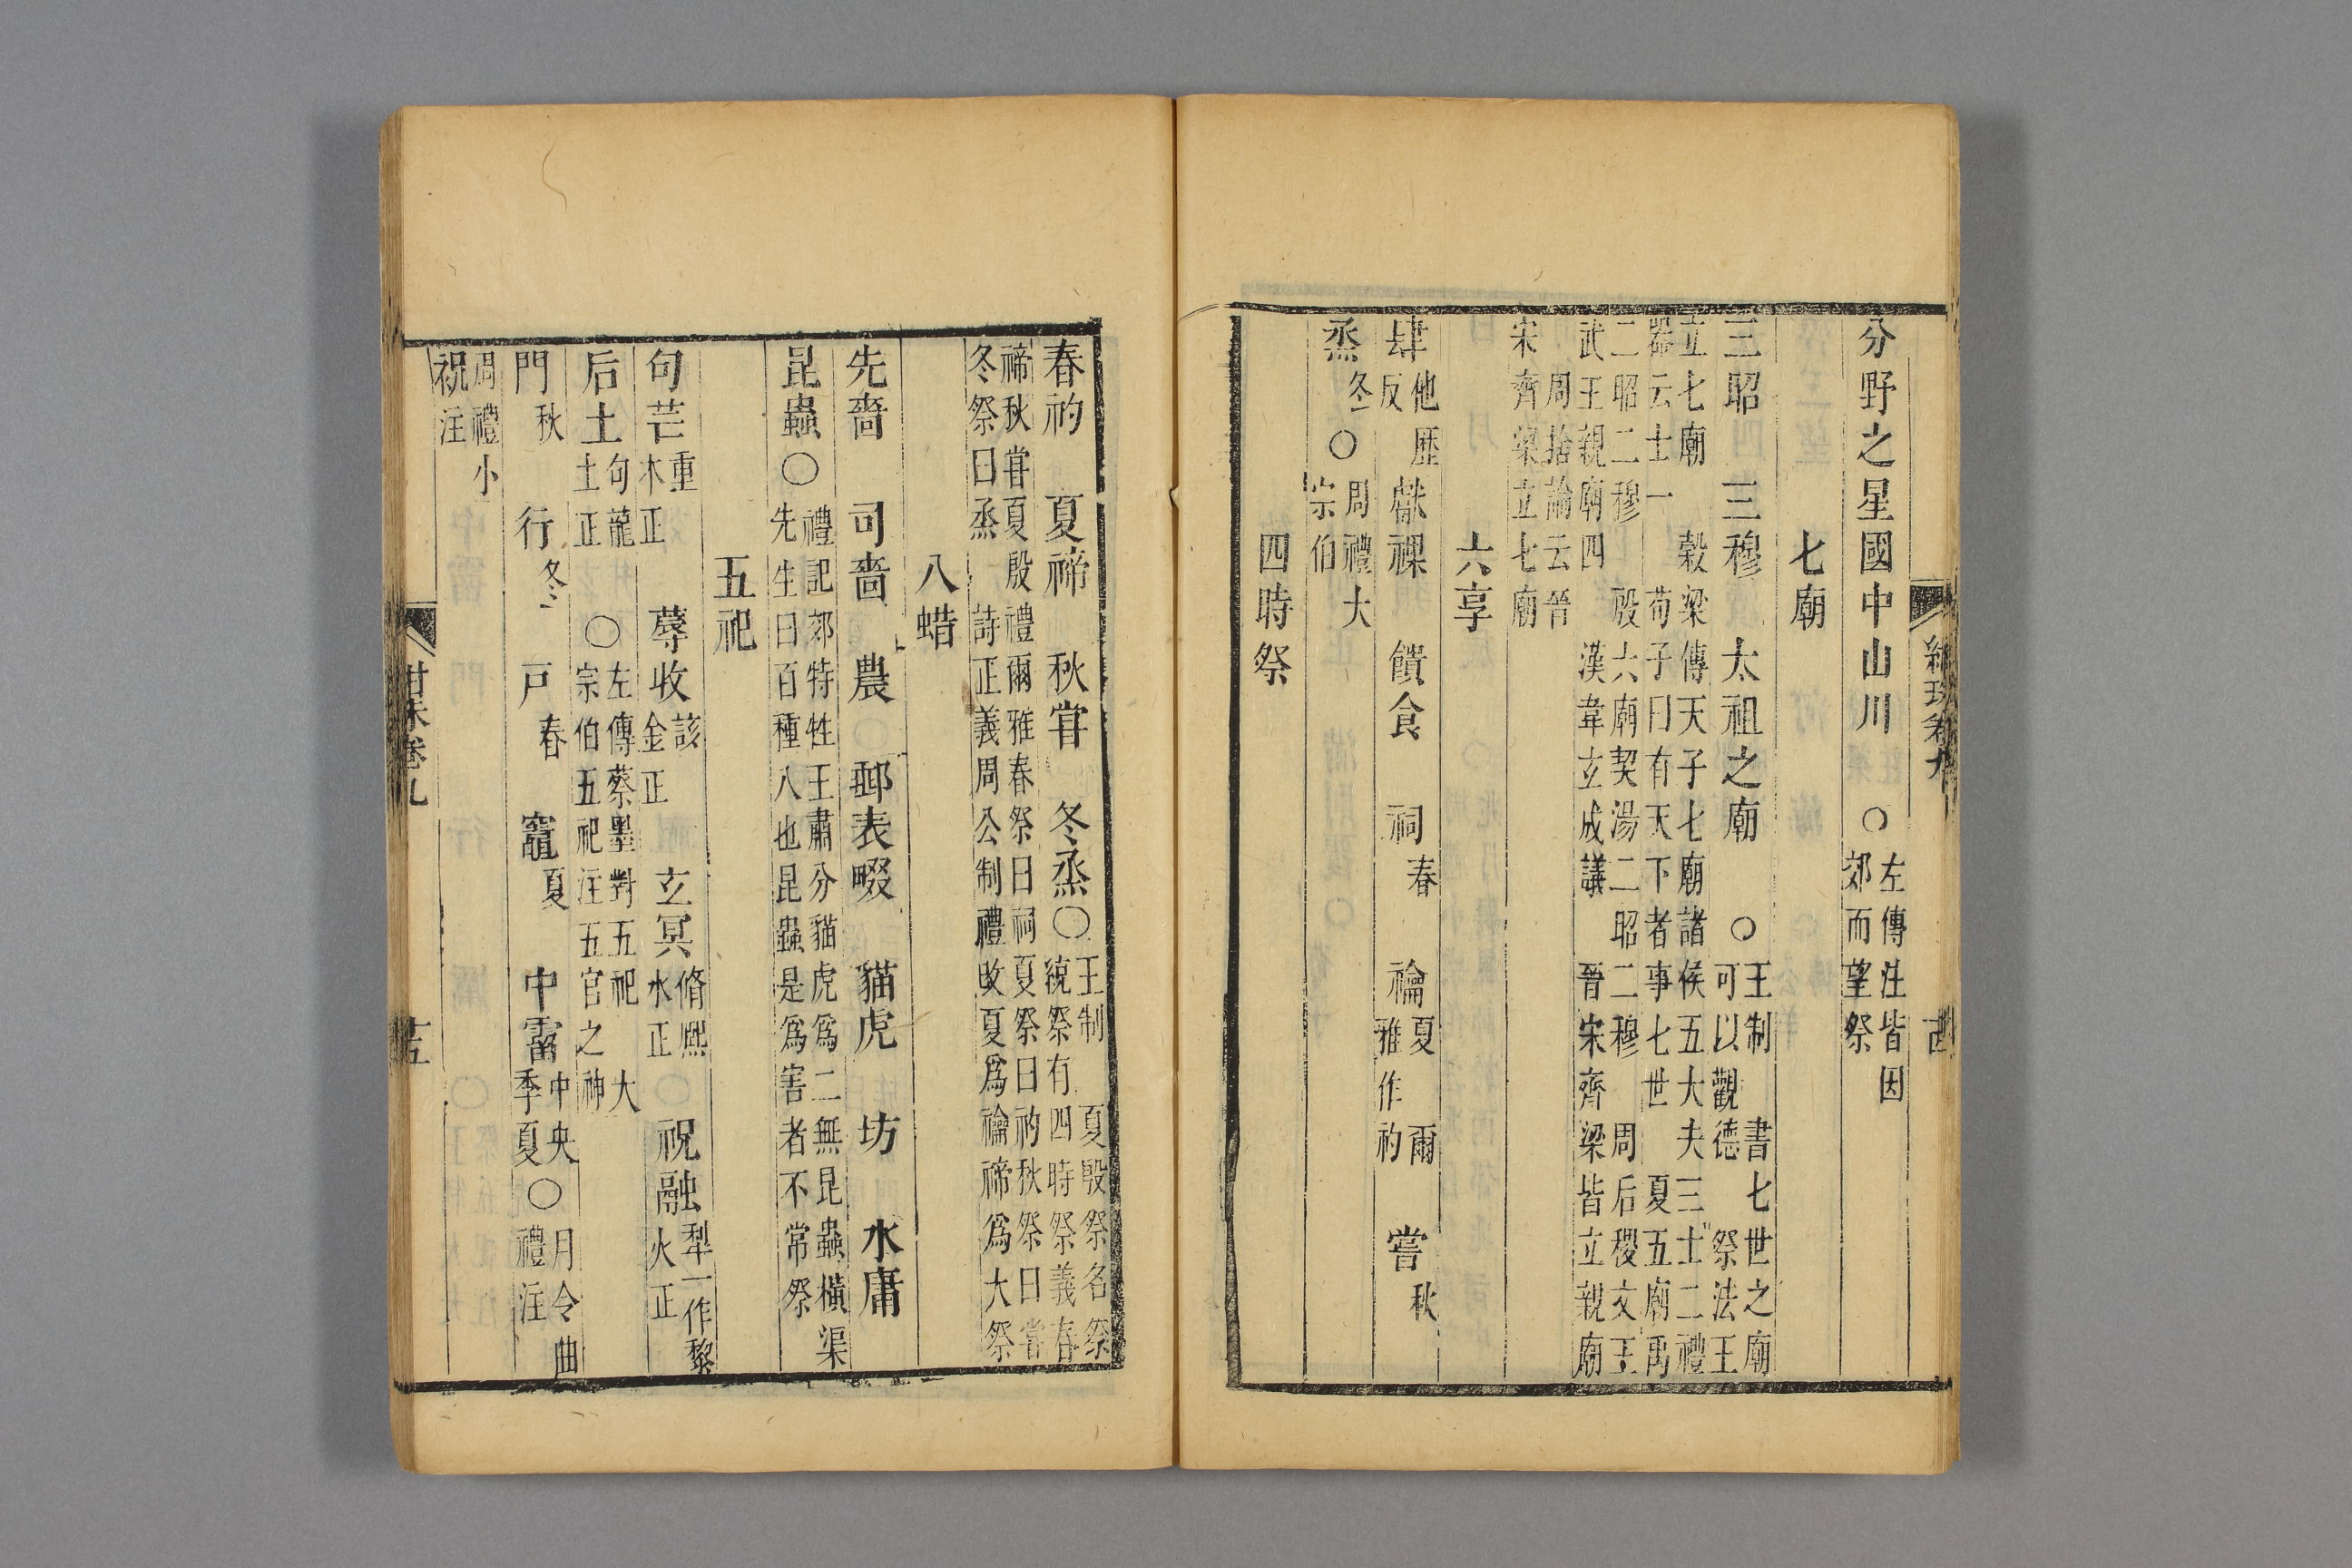 分野之星國中山川 ○左傳注皆因
郊而望祭
七廟
三昭 三穆 太祖之廟 ○王制 書七世之廟
可以觀德 祭法王
立七廟 穀梁傳天子七廟諸侯五大夫三士二禮
器云士一 荀子曰有天下者事七世 夏五廟禹
二昭二穆 殷六廟契湯二昭二穆 周后稷文王
武王親廟四 漢韋玄成議 晉宋齊梁皆立親廟
周捨論云晉
宋齊梁立七廟
六享
肆他歷
反 獻祼 饋食 祠春 禴夏 爾
雅作礿 嘗秋
烝冬○周禮大
宗伯
四時祭
春礿 夏禘 秋甞 冬烝○王制 夏殷祭名祭
統祭有四時祭義春
禘秋甞夏殷禮爾雅春祭曰祠夏祭曰礿秋祭曰甞
冬祭曰烝 詩正義周公制禮改夏爲禴禘爲大祭
八蜡
先嗇 司嗇 農 郵表畷 貓虎 坊 水庸
昆蟲○禮記郊特牲王肅分貓虎爲二無昆蟲橫渠
先生曰百種八也昆蟲是爲害者不常祭
五祀
句芒重
木正 蓐收該
金正 玄冥脩熙
水正○ 祝融犁一作黎
火正
后土句龍
土正 ○左傳蔡墨對五祀 大
宗伯五祀注五官之神
門秋 行冬 戸春 竈夏 中霤中央
季夏○月令曲
禮注
周禮小
祝注